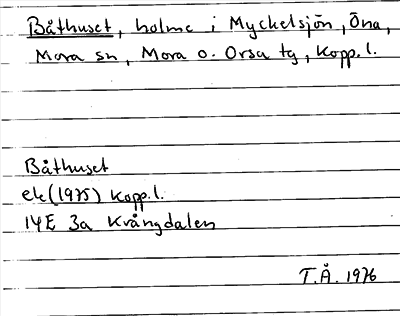 Båthuset, holme i Myckelsjön, Öna,
Mora sn, Mora o. Orsa tg, Kopp.l.
Båthuset
ek (1975) Kopp.l.
14E 3a Krångdalen
T.Å. 1976